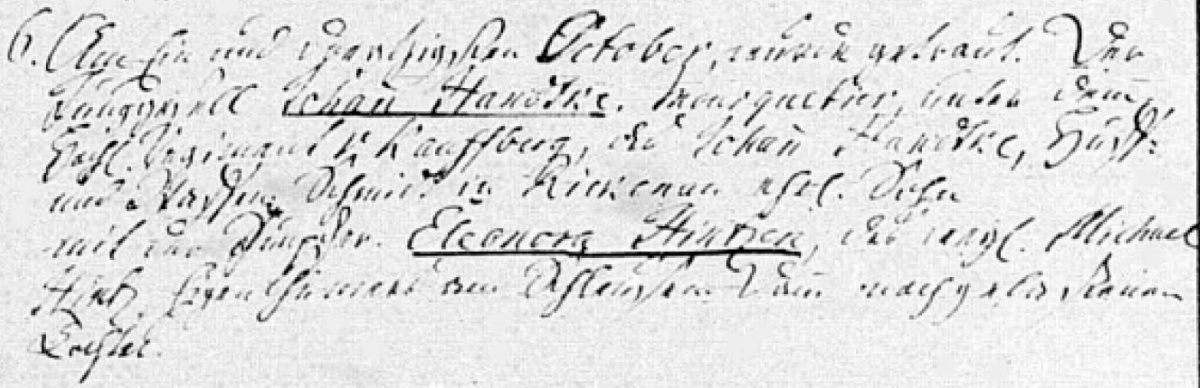 6. Am Ein und dreißigsten October, wurde getraut. Der
Junggesell Johann Handtke. Mousquetier, unter dem
Regiment v. Kauffberg, des Johann Handtke, Huff-
und Waffen Schmid in Rickenau ehel. Sohn
mit der Jungfer. Eleonora Hintzen, des weyl. Michael
Hintz, Eigenthümers am Damm nachgelassenen
Tochter.